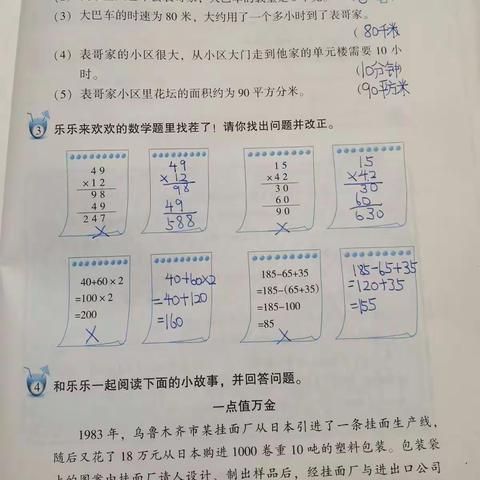 (3) 大巴车的时速为 80 米，大约用了一个多小时到了表哥家。
(80千米
(4) 表哥家的小区很大，从小区大门走到他家的单元楼需要 10 小
时。
(10分钟)
(5) 表哥家小区里花坛的面积约为 90 平方分米。
(90平方米
3 乐乐来欢欢的数学题里找茬了！请你找出问题并改正。
49
×12
98
49
247
×
49
×12
98
49
588
15
×42
30
60
90
×
15
×42
30
60
630
40+60×2
=100×2
=200
×
40+60×2
=40+120
=160
185-65+35
=185-(65+35)
=185-100
=85
×
185-65+35
=120+35
=155
4 和乐乐一起阅读下面的小故事，并回答问题。
一点值万金
1983 年，乌鲁木齐市某挂面厂从日本引进了一条挂面生产线，
随后又花了 18 万元从日本购进 1000 卷重 10 吨的塑料包装。包装袋
上的图案由挂面厂请人设计，制出样品后，经挂面厂与进出口公司